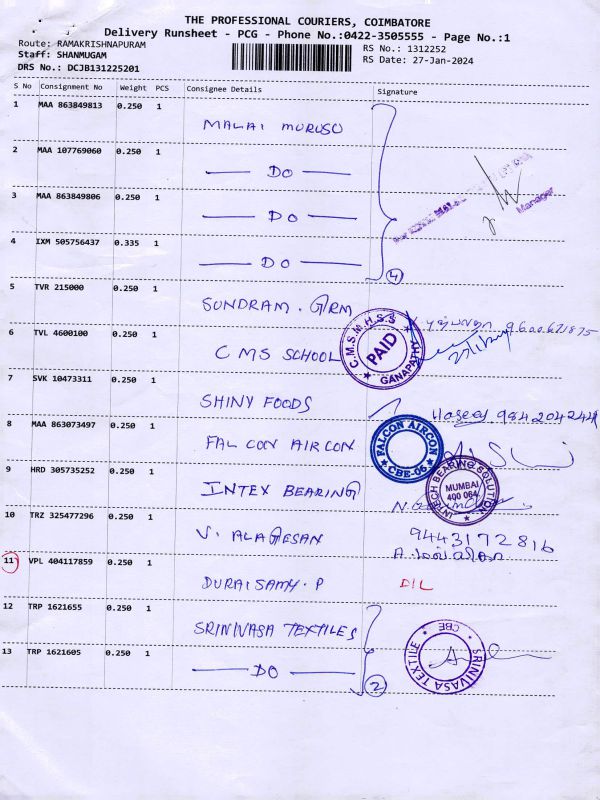 THE PROFESSIONAL COURIERS, COIMBATORE
Delivery Runsheet - PCG - Phone No.:0422-3505555 - Page No.:1
Route: RAMAKRISHNAPURAM
RS No.: 1312252
Staff: SHANMUGAM
RS Date: 27-Jan-2024
DRS No.: DCJB131225201
S No Consignment No Weight PCS Consignee Details Signature
1 MAA 863849813 0.250 1
MALAI MURUSU
2 MAA 107769060 0.250 1
DO
Manager
3 MAA 863849806 0.250 1
DO
4 IXM 505756437 0.335 1
DO
4
5 TVR 215000 0.250 1
SUNDRAM. GRM
9600671875
6 TVL 4600100 0.250 1
CMS SCHOOL
C.M.S.M.H.S.S
PAID
GANAPATHY
7 SVK 10473311 0.250 1
SHINY FOODS
8 MAA 863073497 0.250 1
FALCON AIRCON
FALCON AIRCON
CBE-06
9 HRD 305735252 0.250 1
INTEX BEARING
INTECH BEARING SOLUTION
MUMBAI
400 064
10 TRZ 325477296 0.250 1
V. ALAGESAN
9443172816
11 VPL 404117859 0.250 1
DURAISAMY. P
D/L
12 TRP 1621655 0.250 1
SRINIVASA TEXTILES
13 TRP 1621605 0.250 1
DO
2
CBE
SRINIVASA TEXTILE